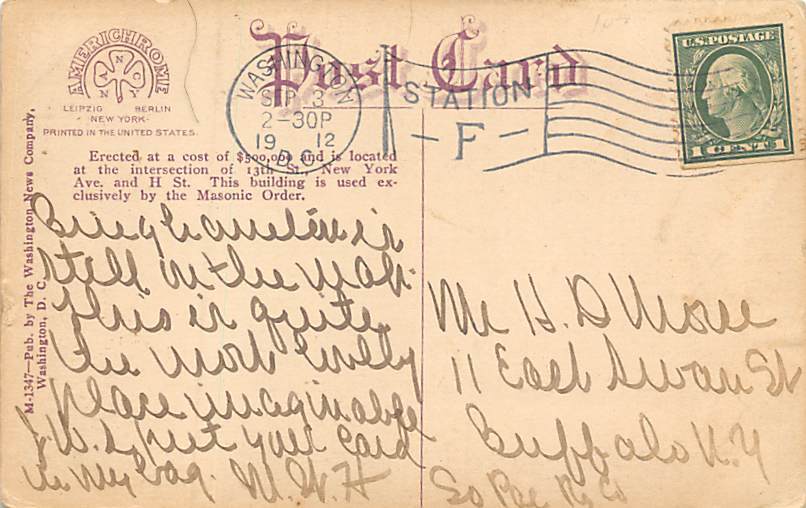 AMERICHROME
ANCNY
LEIPZIG BERLIN
NEW YORK
PRINTED IN THE UNITED STATES.
Post Card
WASHINGTON
SEP 3
2-30P
19 12
D.C.
STATION
-F-
U.S. POSTAGE
1 CENT 1
Erected at a cost of $500,000 and is located
at the intersection of 13th St., New York
Ave. and H St. This building is used ex-
clusively by the Masonic Order.
M-1347—Pub. by The Washington News Company,
Washington, D. C.
Binghamton is
still on the map.
This is quite
the most lovely
place imaginable
J.W. L. put your card
in my bag. M.W.H
Mr H. D
11 East Swan St
Buffalo N.Y
So Pac Ry Co